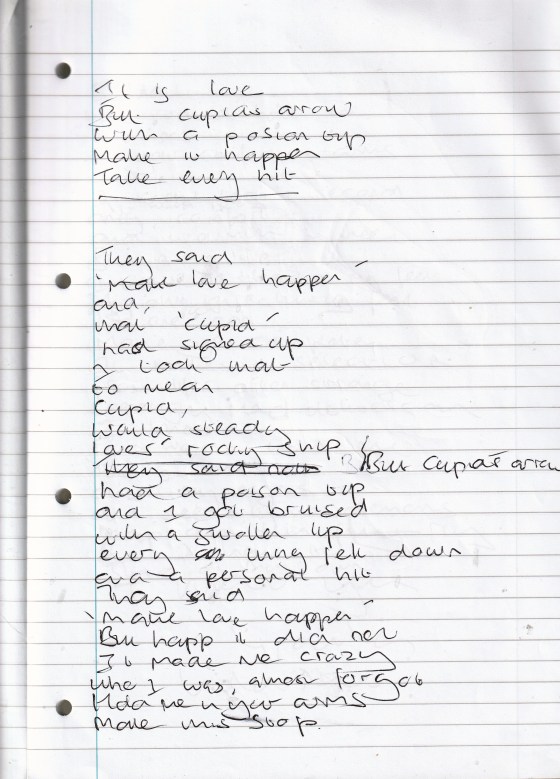 It is love
But cupids arrow
with a posion tip
Make it happen
Take every hit
They said
'Make love happen'
and,
that 'cupid'
had signed up
I took that
to mean
Cupid,
would steady
loves' rocky ship
They said
But Cupids arrow
had a poison tip
and I got bruised
with a swollen lip
every thing fell down
and a personal hit
They said
'Make love happen'
But happ it did not
It made me crazy
who I was, almost forgot
Hold me in your arms
Make this stop.